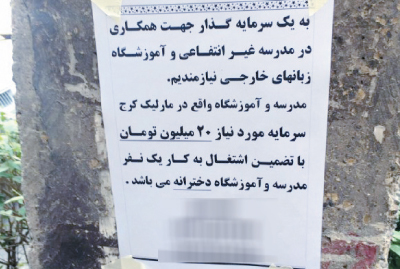 به یک سرمایه گذار جهت همکاری
در مدرسه غیر انتفاعی و آموزشگاه
زبانهای خارجی نیازمندیم.
مدرسه و آموزشگاه واقع در مارلیک کرج
سرمایه مورد نیاز ۲۰ میلیون تومان
با تضمین اشتغال به کار یک نفر
مدرسه وآموزشگاه دخترانه می باشد .